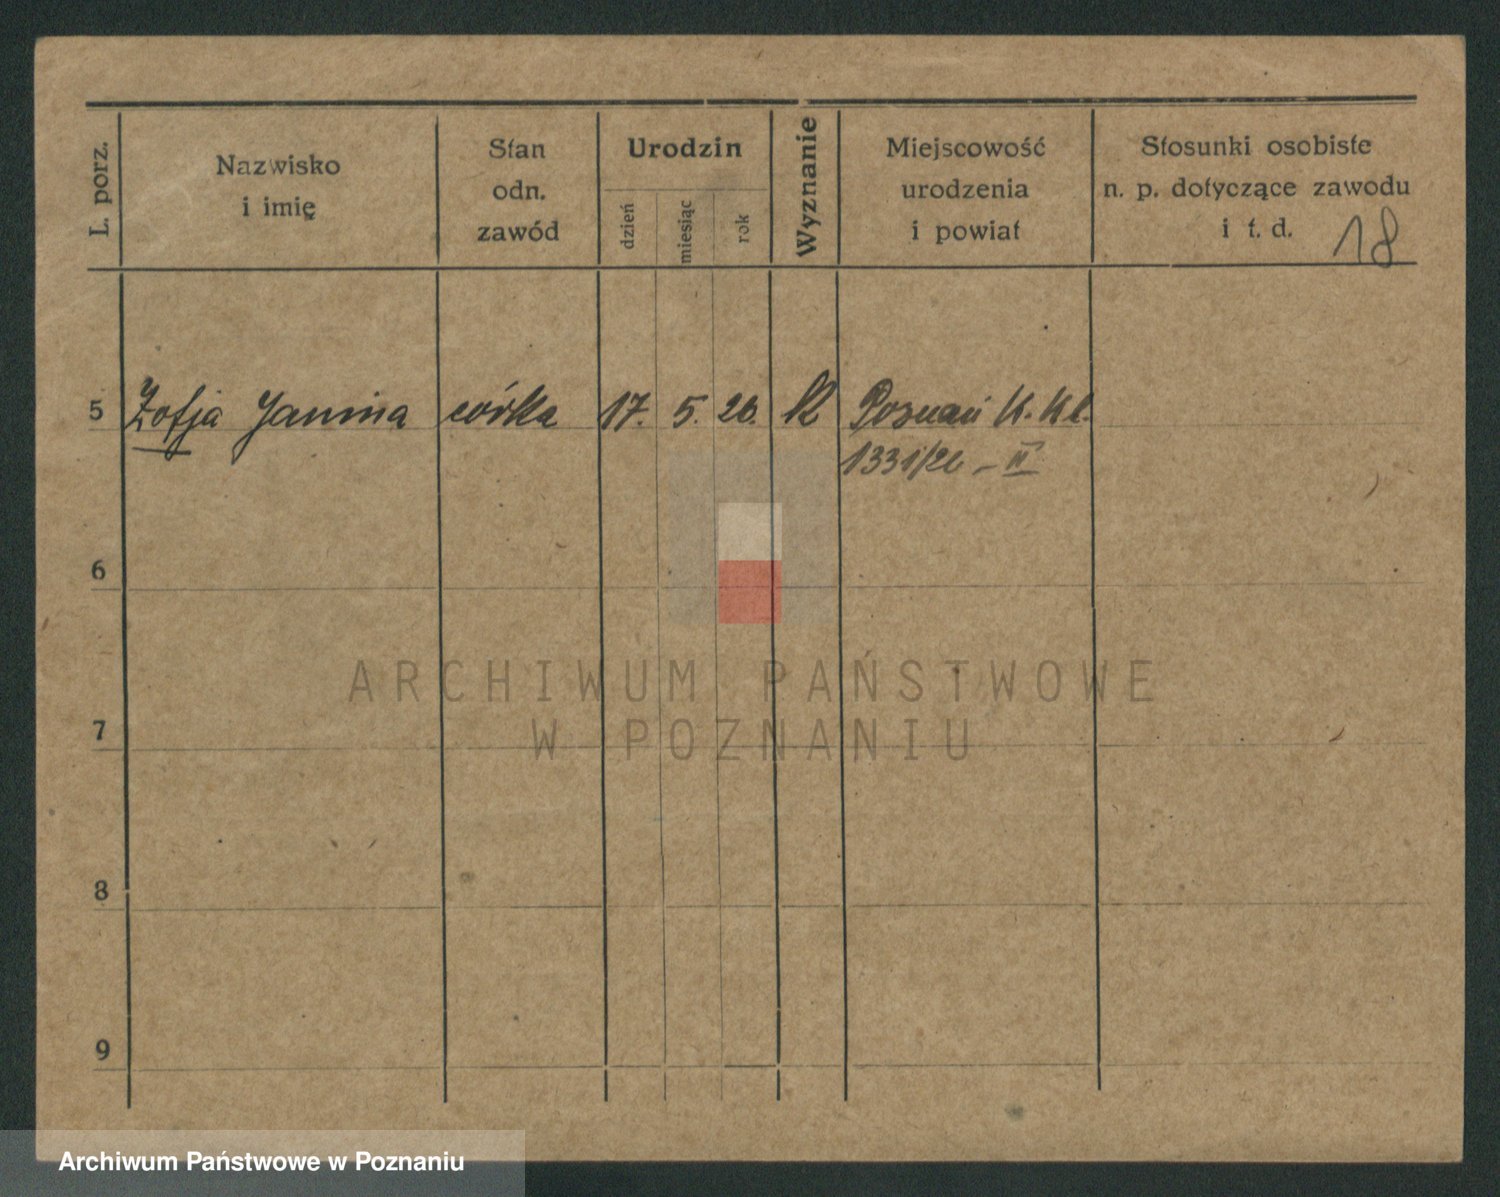 L. porz.
Nazwisko
i imię
Stan
odn.
zawód
Urodzin
dzień
miesiąc
rok
Wyznanie
Miejscowość
urodzenia
i powiat
Stosunki osobiste
n. p. dotyczące zawodu
i t. d.
18
5 Zofja Janina córka 17. 5. 26. k Poznań K. Kl.
1331/26 – II
6
7
8
9
ARCHIWUM PAŃSTWOWE
W POZNANIU
Archiwum Państwowe w Poznaniu